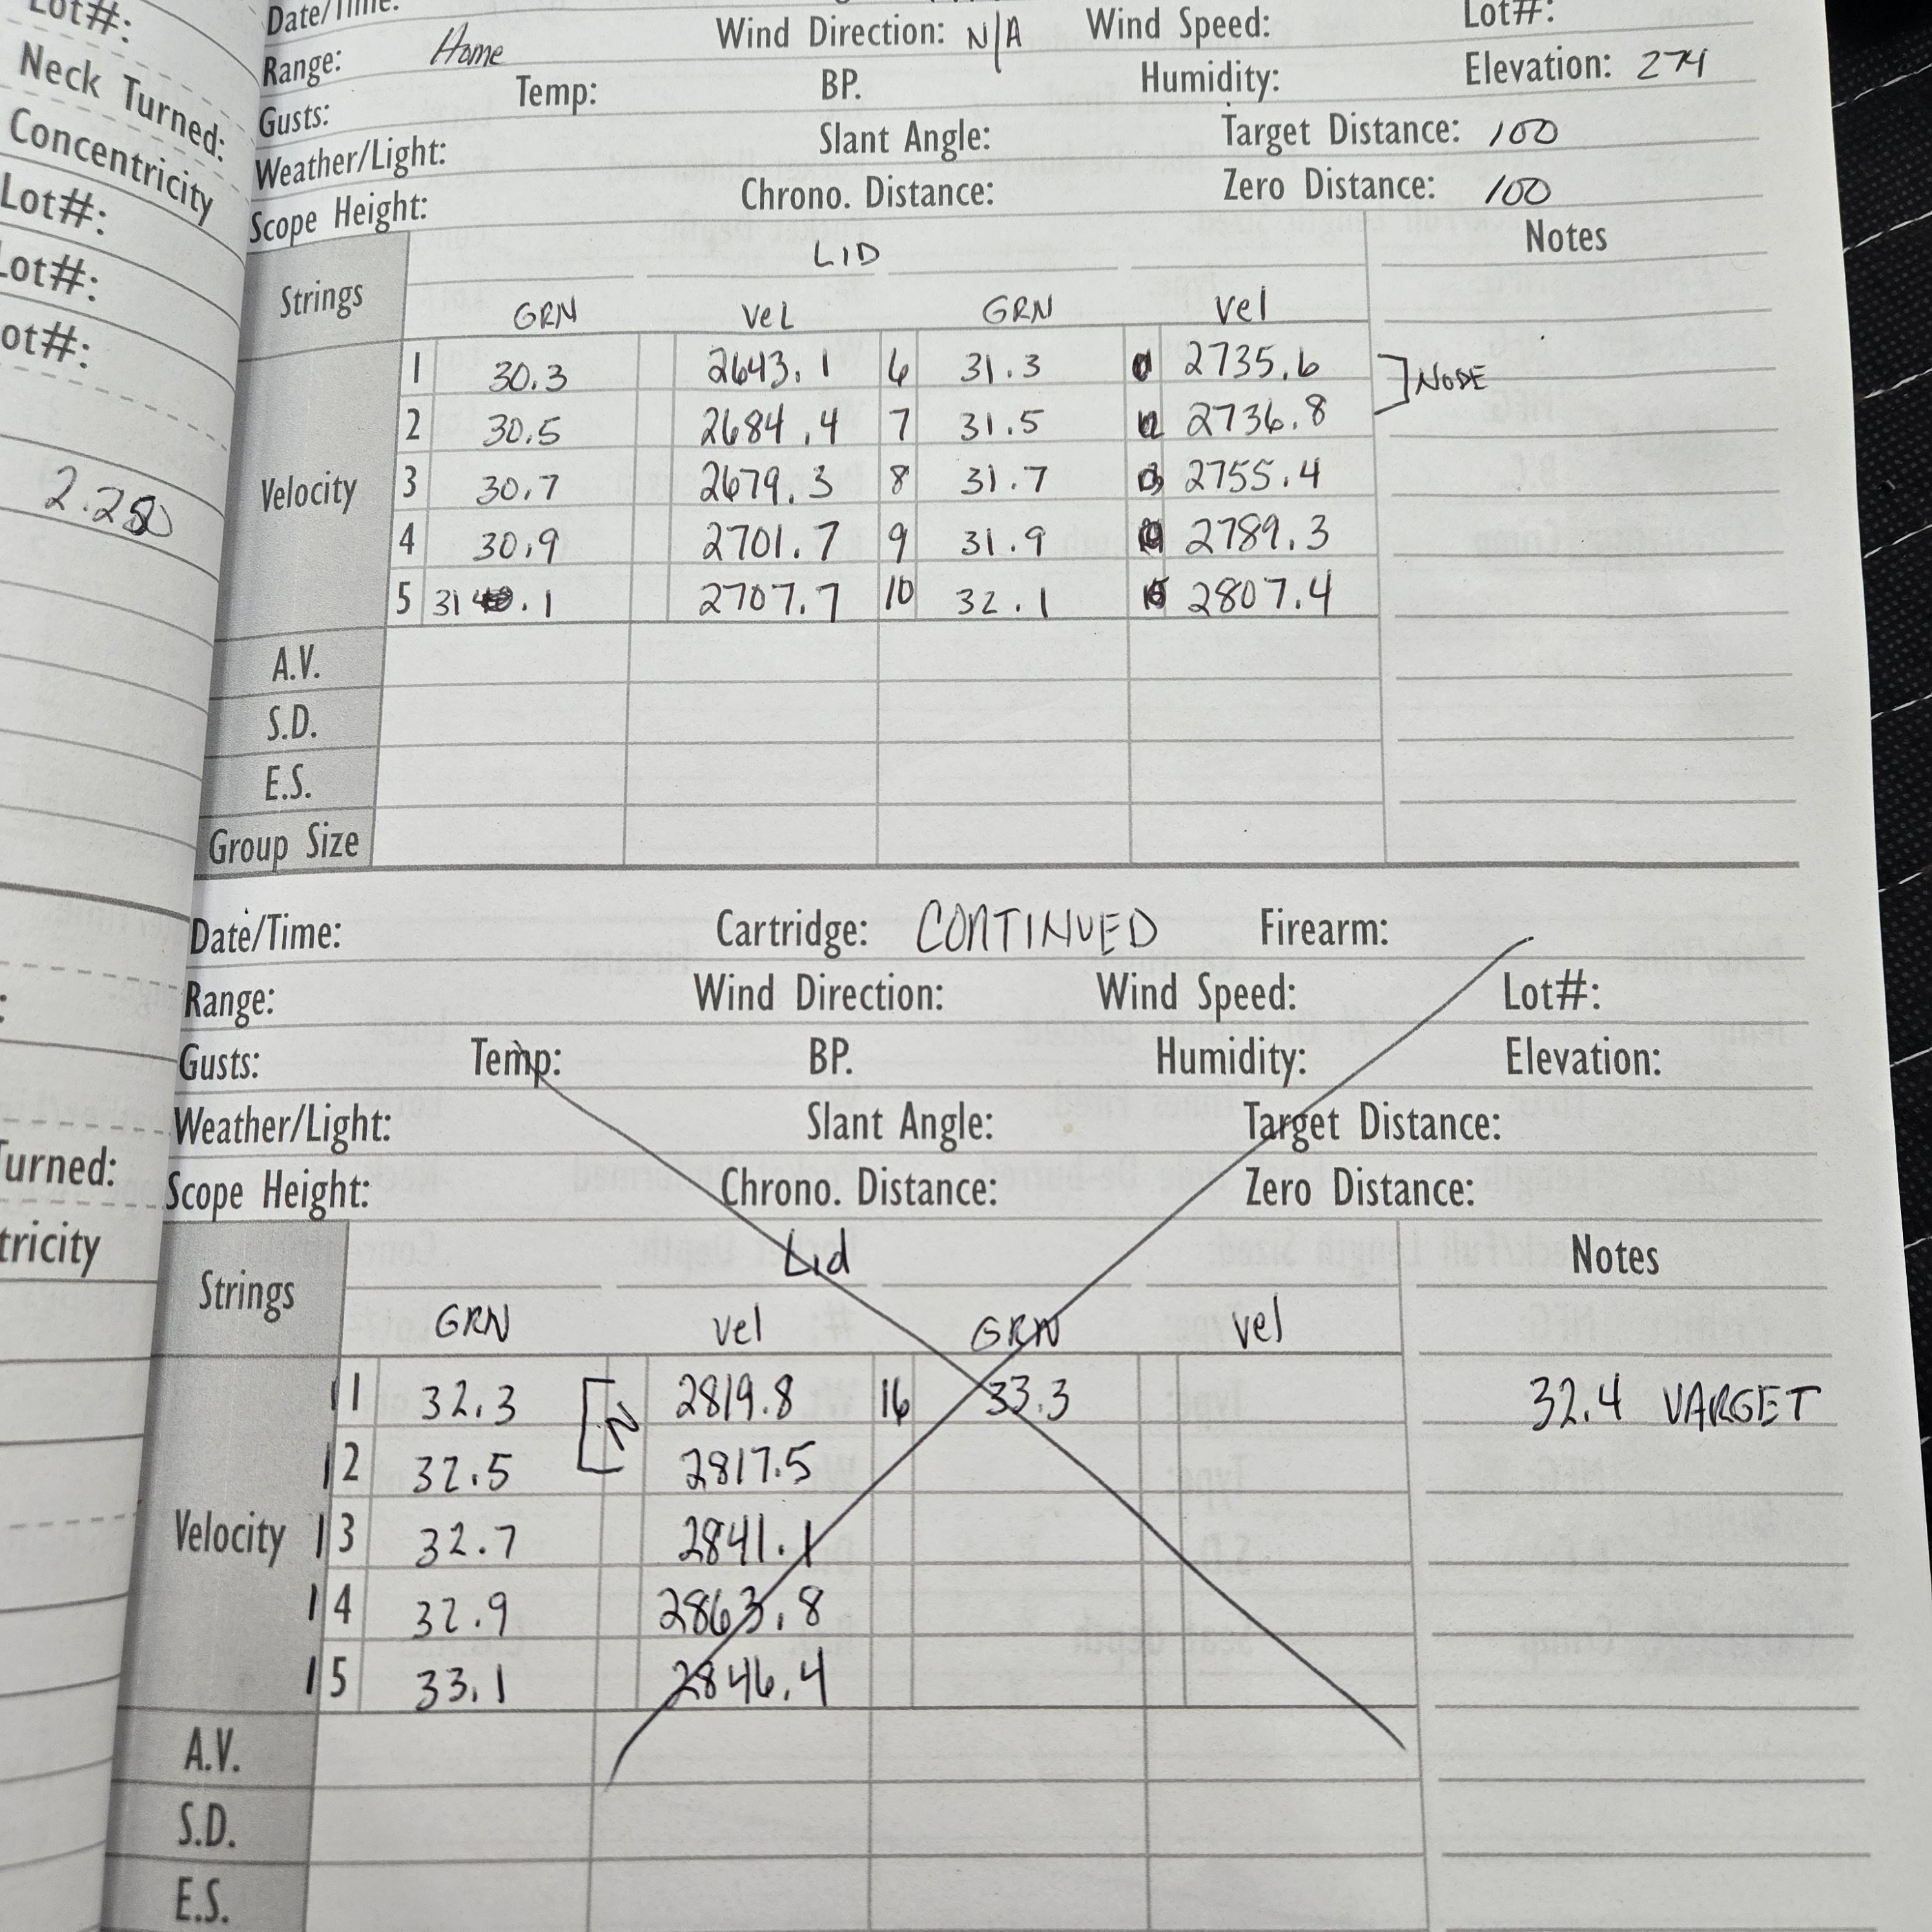 Lot#:
Neck Turned:
Concentricity
Lot#:
Lot#:
ot#:
2.250
Turned:
tricity
Date/Time:
Range: Home Wind Direction: N/A Wind Speed: Lot#:
Gusts: Temp: BP. Humidity: Elevation: 274
Weather/Light: Slant Angle: Target Distance: 100
Scope Height: Chrono. Distance: Zero Distance: 100
LID Notes
Strings GRN VeL GRN Vel
1 30.3 2643.1 6 31.3 2735.6 ]NODE
2 30.5 2684.4 7 31.5 2736.8
Velocity 3 30.7 2679.3 8 31.7 2755.4
4 30.9 2701.7 9 31.9 2789.3
5 31.1 2707.7 10 32.1 2807.4
A.V.
S.D.
E.S.
Group Size
Date/Time: Cartridge: CONTINUED Firearm:
Range: Wind Direction: Wind Speed: Lot#:
Gusts: Temp: BP. Humidity: Elevation:
Weather/Light: Slant Angle: Target Distance:
Scope Height: Chrono. Distance: Zero Distance:
Lid Notes
Strings GRN Vel GRN Vel
11 32.3 [N 2819.8 16 33.3 32.4 VARGET
12 32.5 2817.5
Velocity 13 32.7 2841.1
14 32.9 2863.8
15 33.1 2846.4
A.V.
S.D.
E.S.